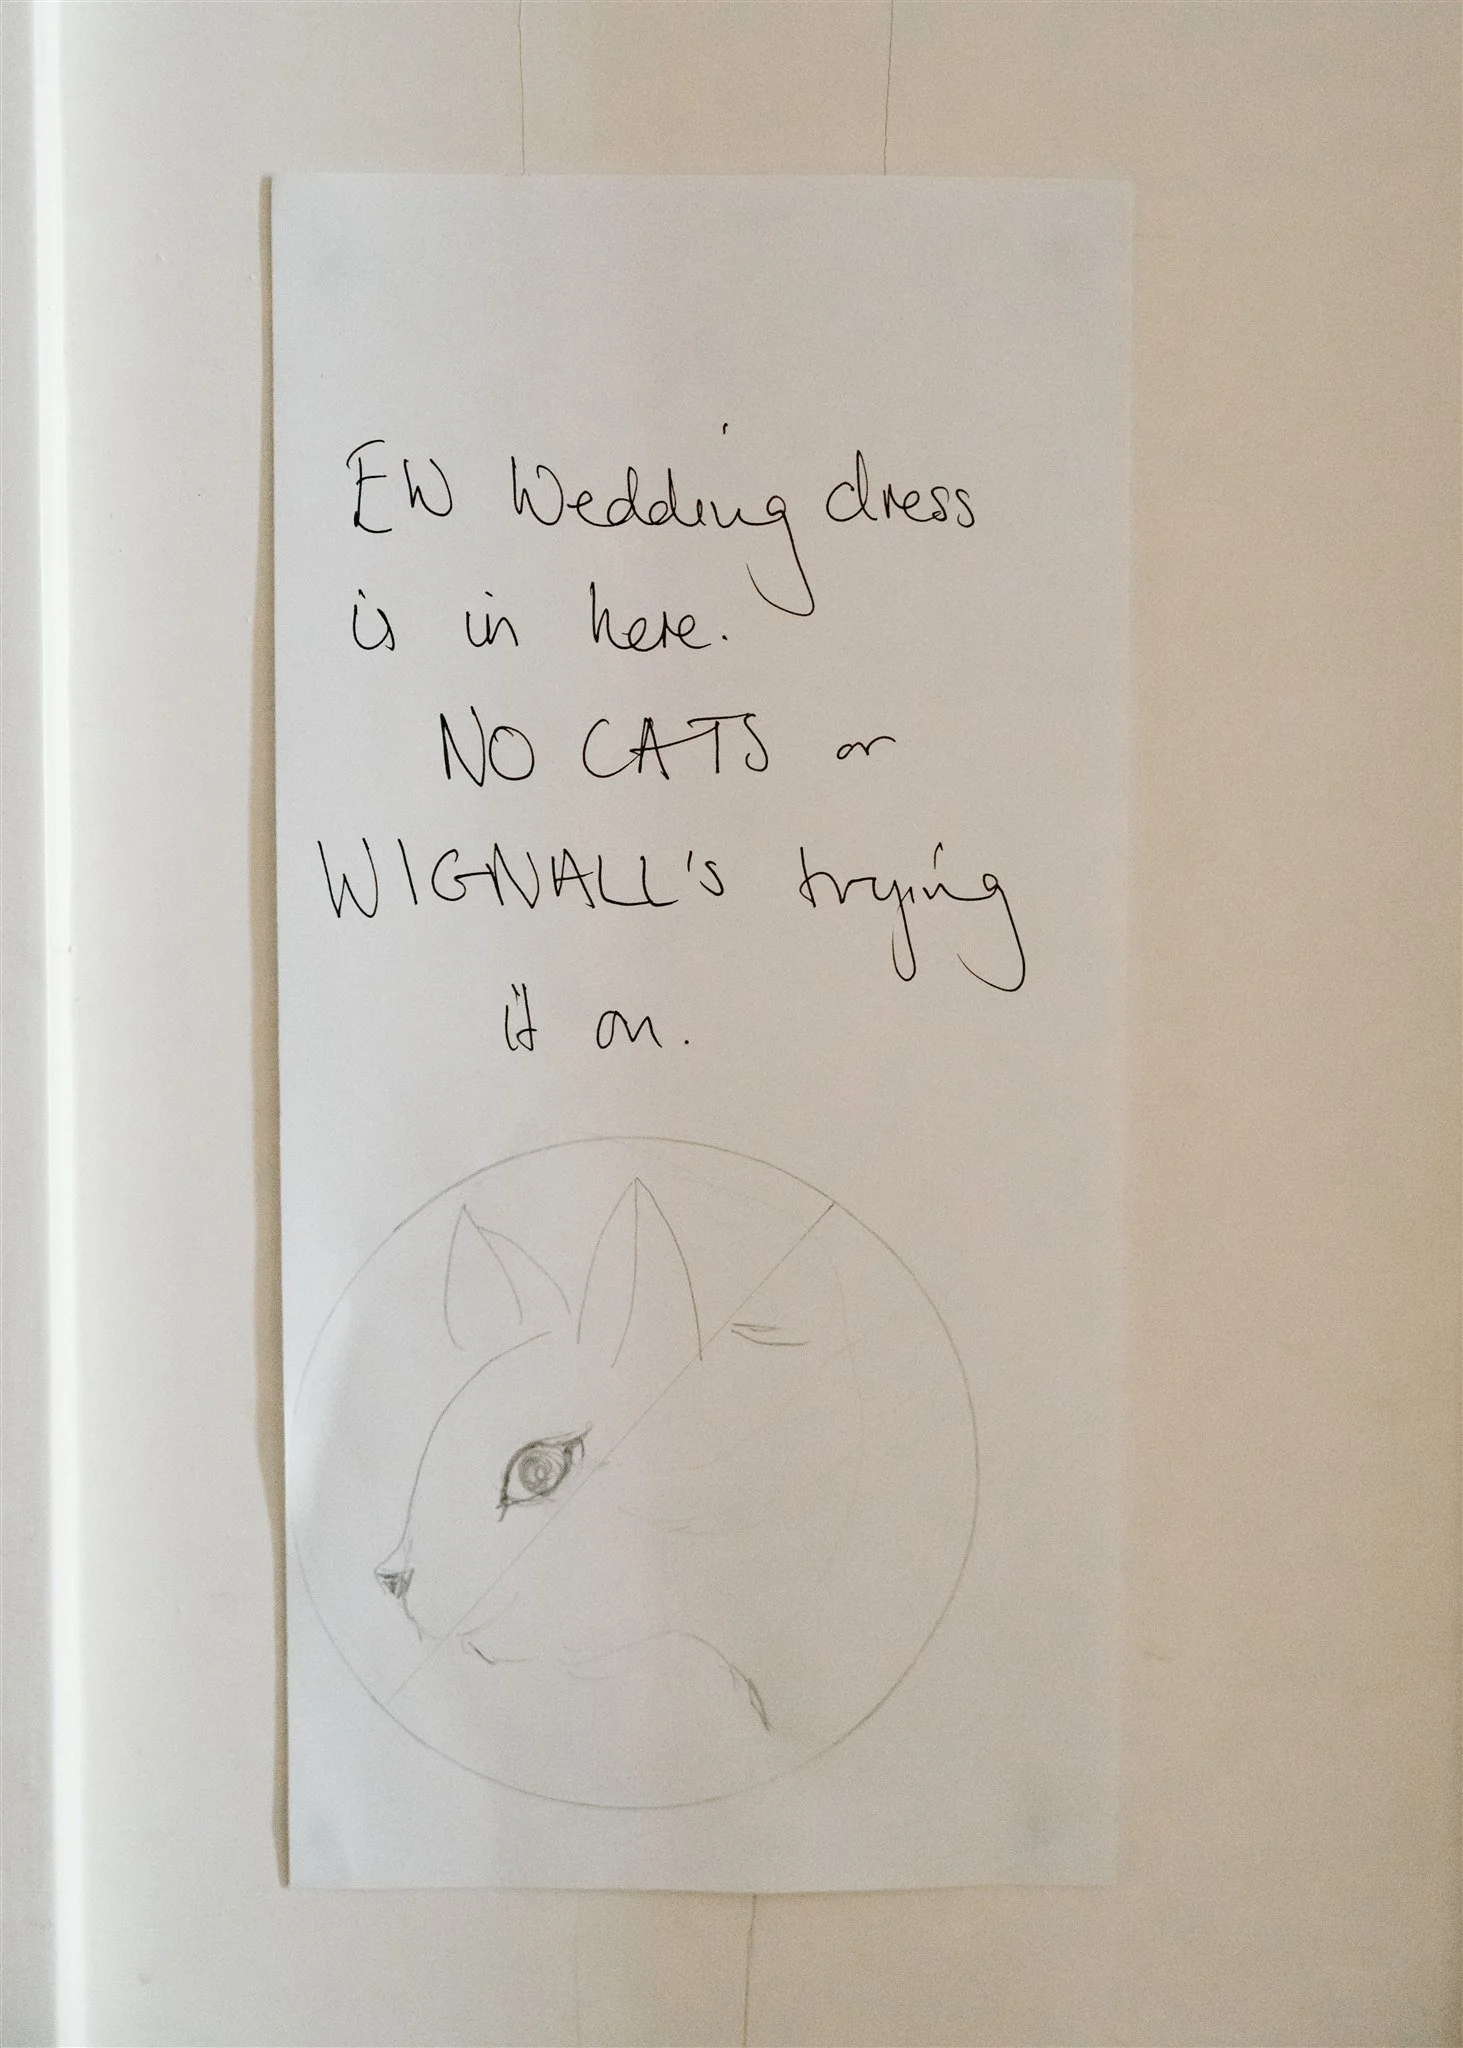 EW Wedding dress
is in here.
NO CATS or
WIGNALL's trying
it on.